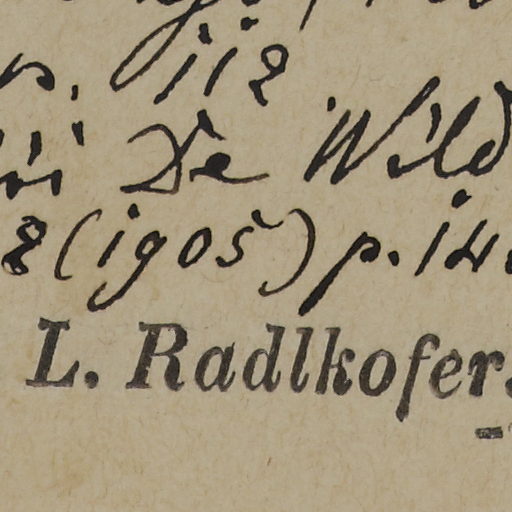 p. 112
De Wild
2 (1905) p. 14
L. Radlkofer.